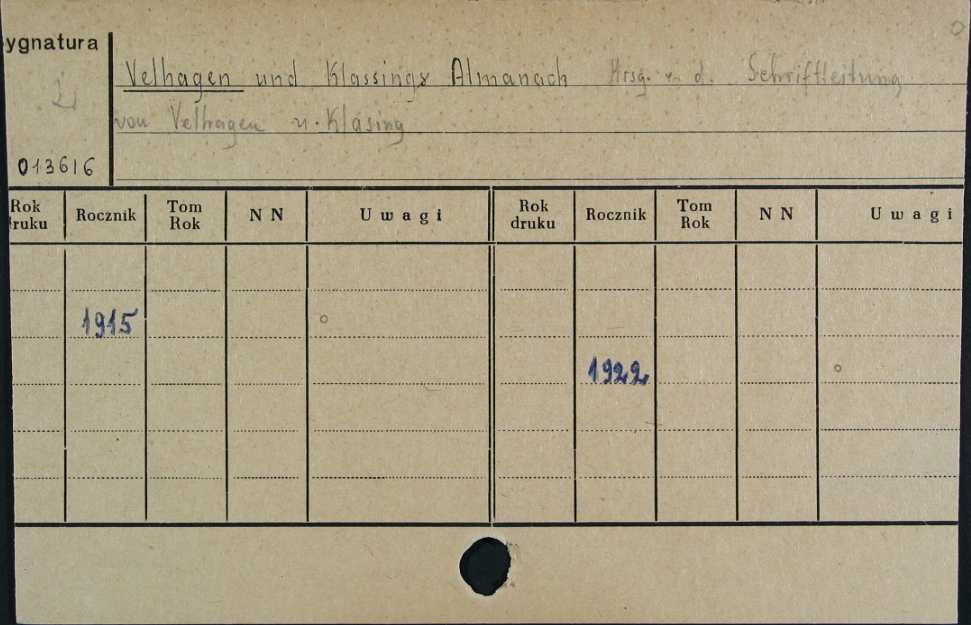 ygnatura
Velhagen und Klassings Almanach Hrsg. v. d. Schriftleitung
von Velhagen u. Klasing
013616
Rok druku Rocznik Tom Rok N N Uwagi Rok druku Rocznik Tom Rok N N Uwagi
1915
1922